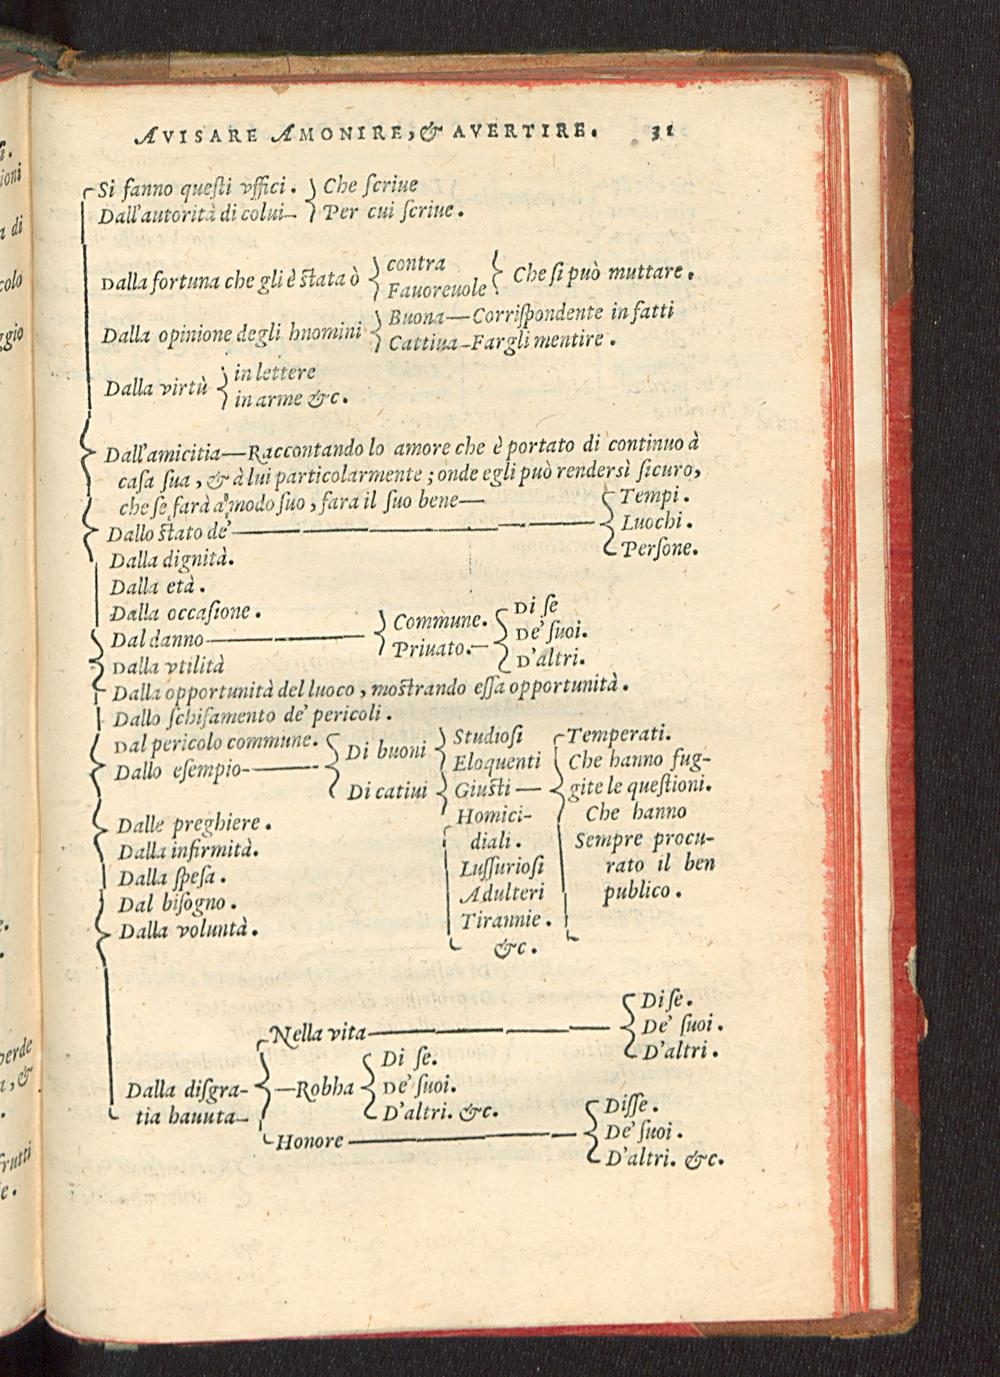 AVISARE AMONIRE, & AVERTIRE. 31
Si fanno questi vffici. Che scriue
Dall'autorità di colui Per cui scriue.
Dalla fortuna che gli è stata ò contra Che si può muttare.
Fauoreuole
Dalla opinione degli hnomini Buona—Corrispondente in fatti
Cattiua—Fargli mentire.
Dalla virtù in lettere
in arme &c.
Dall'amicitia—Raccontando lo amore che è portato di continuo à
casa sua, & à lui particolarmente; onde egli può rendersi sicuro,
che se farà a modo suo, fara il suo bene—
Dallo stato de' Tempi.
Luochi.
Persone.
Dalla dignità.
Dalla età.
Dalla occasione.
Dal danno Commune. Di se
Dalla vtilità Priuato.— De' suoi.
D'altri.
Dalla opportunità del luoco, mostrando essa opportunità.
Dallo schifamento de' pericoli.
Dal pericolo commune.
Dallo esempio— Di buoni Studiosi Temperati.
Eloquenti Che hanno fug-
Di catiui Giusti— gite le questioni.
Homici- Che hanno
diali. Sempre procu-
Lussuriosi rato il ben
Adulteri publico.
Tirannie.
&c.
Dalle preghiere.
Dalla infirmità.
Dalla spesa.
Dal bisogno.
Dalla voluntà.
Dalla disgra-
tia hauuta—
Nella vita— Di se.
De' suoi.
D'altri.
—Robha Di se.
De' suoi.
D'altri. &c.
Honore— Disse.
De' suoi.
D'altri. &c.